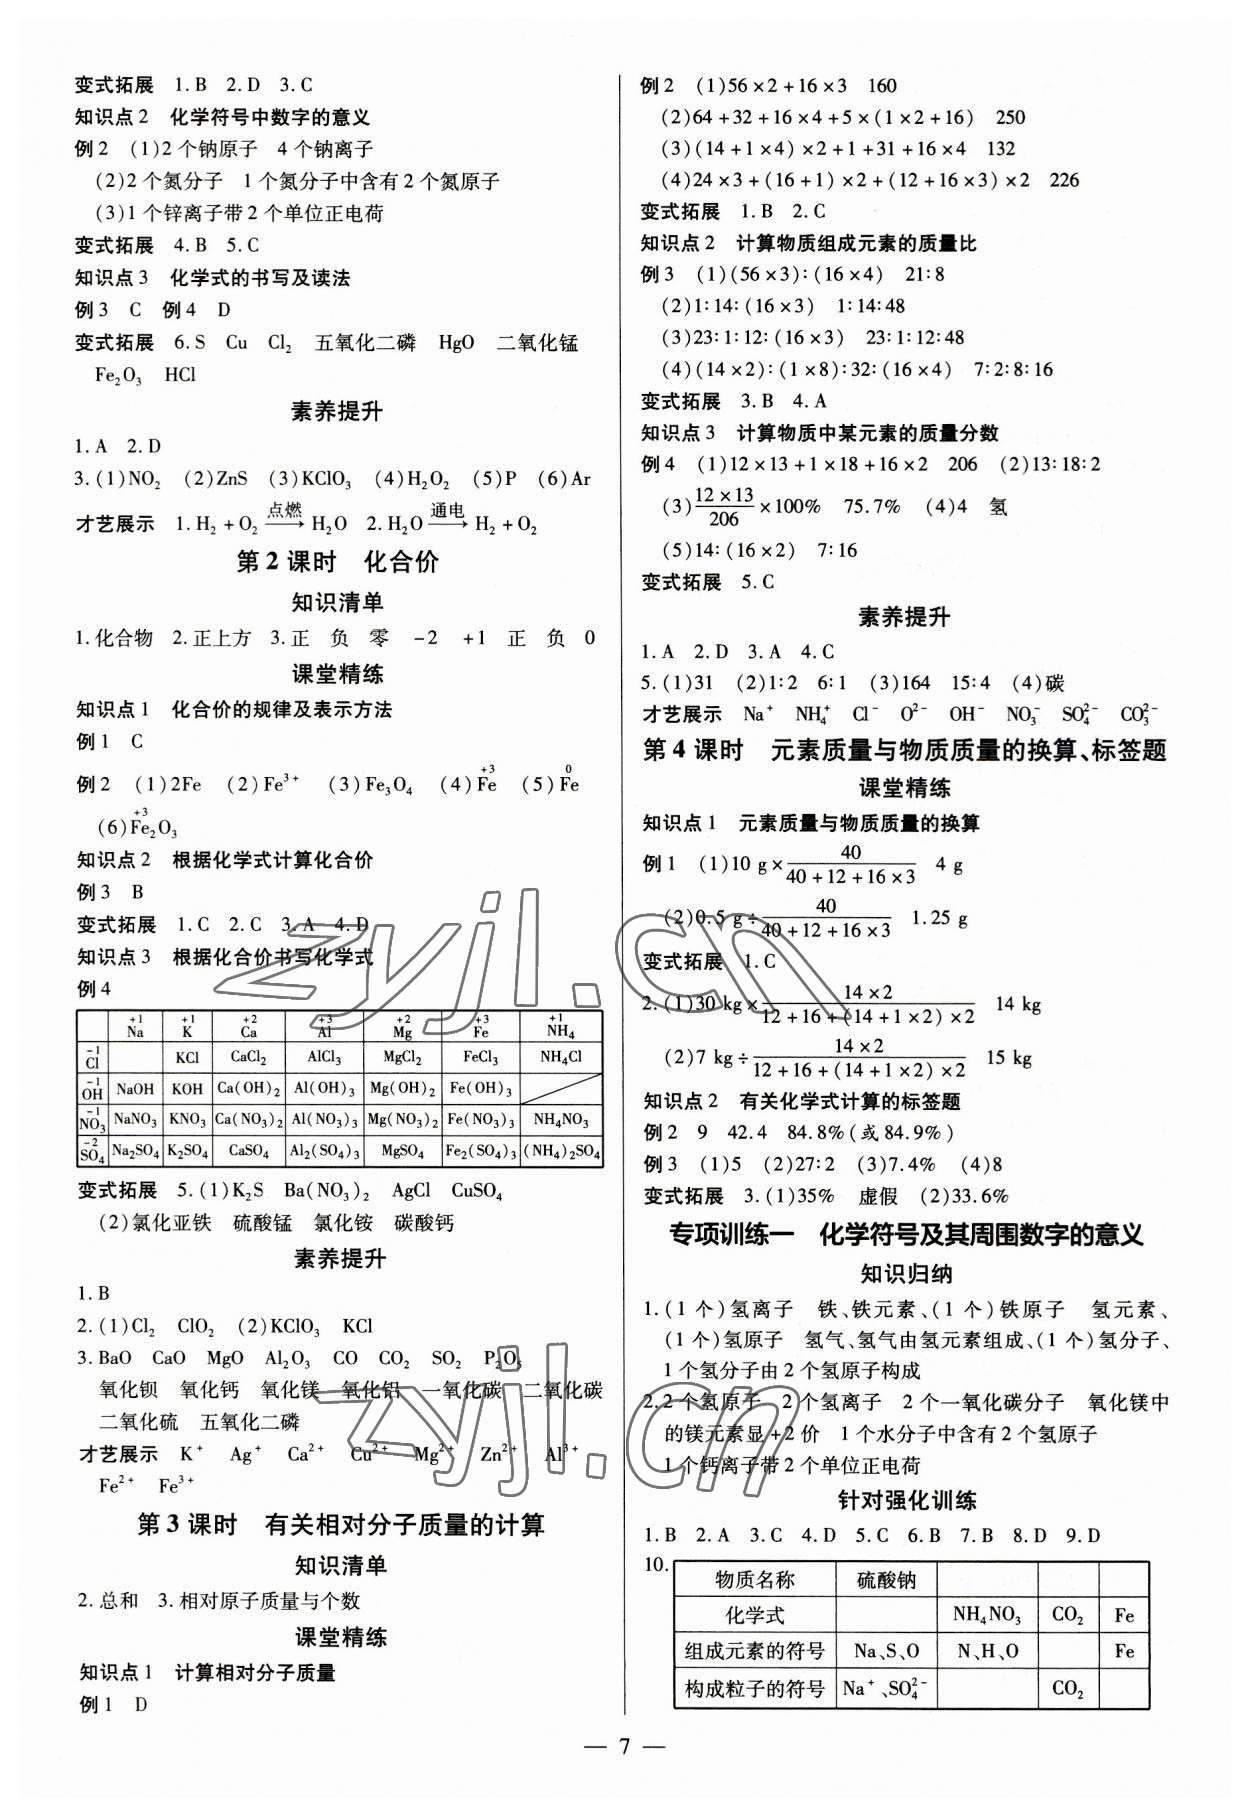 变式拓展　1.B　2.D　3.C
知识点2　化学符号中数字的意义
例2　(1)2个钠原子　4个钠离子
(2)2个氮分子　1个氮分子中含有2个氮原子
(3)1个锌离子带2个单位正电荷
变式拓展　4.B　5.C
知识点3　化学式的书写及读法
例3　C　例4　D
变式拓展　6.S　Cu　Cl₂　五氧化二磷　HgO　二氧化锰
Fe₂O₃　HCl
素养提升
1.A　2.D
3.(1)NO₂　(2)ZnS　(3)KClO₃　(4)H₂O₂　(5)P　(6)Ar
才艺展示　1.H₂+O₂ —点燃→ H₂O　2.H₂O —通电→ H₂+O₂
第2课时　化合价
知识清单
1.化合物　2.正上方　3.正　负　零　-2　+1　正　负　0
课堂精练
知识点1　化合价的规律及表示方法
例1　C
+3　0
例2　(1)2Fe　(2)Fe³⁺　(3)Fe₃O₄　(4)Fe　(5)Fe
+3
(6)Fe₂O₃
知识点2　根据化学式计算化合价
例3　B
变式拓展　1.C　2.C　3.A　4.D
知识点3　根据化合价书写化学式
例4
+1　+1　+2　+3　+2　+3　+1
Na　K　Ca　Al　Mg　Fe　NH₄
-1
Cl　KCl　CaCl₂　AlCl₃　MgCl₂　FeCl₃　NH₄Cl
-1
OH　NaOH　KOH　Ca(OH)₂　Al(OH)₃　Mg(OH)₂　Fe(OH)₃
-1
NO₃　NaNO₃　KNO₃　Ca(NO₃)₂　Al(NO₃)₃　Mg(NO₃)₂　Fe(NO₃)₃　NH₄NO₃
-2
SO₄　Na₂SO₄　K₂SO₄　CaSO₄　Al₂(SO₄)₃　MgSO₄　Fe₂(SO₄)₃　(NH₄)₂SO₄
变式拓展　5.(1)K₂S　Ba(NO₃)₂　AgCl　CuSO₄
(2)氯化亚铁　硫酸锰　氯化铵　碳酸钙
素养提升
1.B
2.(1)Cl₂　ClO₂　(2)KClO₃　KCl
3.BaO　CaO　MgO　Al₂O₃　CO　CO₂　SO₂　P₂O₅
氧化钡　氧化钙　氧化镁　氧化铝　一氧化碳　二氧化碳
二氧化硫　五氧化二磷
才艺展示　K⁺　Ag⁺　Ca²⁺　Cu²⁺　Mg²⁺　Zn²⁺　Al³⁺
Fe²⁺　Fe³⁺
第3课时　有关相对分子质量的计算
知识清单
2.总和　3.相对原子质量与个数
课堂精练
知识点1　计算相对分子质量
例1　D
例2　(1)56×2+16×3　160
(2)64+32+16×4+5×(1×2+16)　250
(3)(14+1×4)×2+1+31+16×4　132
(4)24×3+(16+1)×2+(12+16×3)×2　226
变式拓展　1.B　2.C
知识点2　计算物质组成元素的质量比
例3　(1)(56×3)∶(16×4)　21∶8
(2)1∶14∶(16×3)　1∶14∶48
(3)23∶1∶12∶(16×3)　23∶1∶12∶48
(4)(14×2)∶(1×8)∶32∶(16×4)　7∶2∶8∶16
变式拓展　3.B　4.A
知识点3　计算物质中某元素的质量分数
例4　(1)12×13+1×18+16×2　206　(2)13∶18∶2
(3)12×13/206×100%　75.7%　(4)4　氢
(5)14∶(16×2)　7∶16
变式拓展　5.C
素养提升
1.A　2.D　3.A　4.C
5.(1)31　(2)1∶2　6∶1　(3)164　15∶4　(4)碳
才艺展示　Na⁺　NH₄⁺　Cl⁻　O²⁻　OH⁻　NO₃⁻　SO₄²⁻　CO₃²⁻
第4课时　元素质量与物质质量的换算、标签题
课堂精练
知识点1　元素质量与物质质量的换算
例1　(1)10 g×40/(40+12+16×3)　4 g
(2)0.5 g÷40/(40+12+16×3)　1.25 g
变式拓展　1.C
2.(1)30 kg×14×2/(12+16+(14+1×2)×2)　14 kg
(2)7 kg÷14×2/(12+16+(14+1×2)×2)　15 kg
知识点2　有关化学式计算的标签题
例2　9　42.4　84.8%(或84.9%)
例3　(1)5　(2)27∶2　(3)7.4%　(4)8
变式拓展　3.(1)35%　虚假　(2)33.6%
专项训练一　化学符号及其周围数字的意义
知识归纳
1.(1个)氢离子　铁、铁元素、(1个)铁原子　氢元素、
(1个)氢原子　氢气、氢气由氢元素组成、(1个)氢分子、
1个氢分子由2个氢原子构成
2.2个氢原子　2个氢离子　2个一氧化碳分子　氧化镁中
的镁元素显+2价　1个水分子中含有2个氢原子
1个钙离子带2个单位正电荷
针对强化训练
1.B　2.A　3.C　4.D　5.C　6.B　7.B　8.D　9.D
10.
物质名称　硫酸钠
化学式　NH₄NO₃　CO₂　Fe
组成元素的符号　Na、S、O　N、H、O　Fe
构成粒子的符号　Na⁺、SO₄²⁻　CO₂
— 7 —
zyjl.cn
zyjl.cn